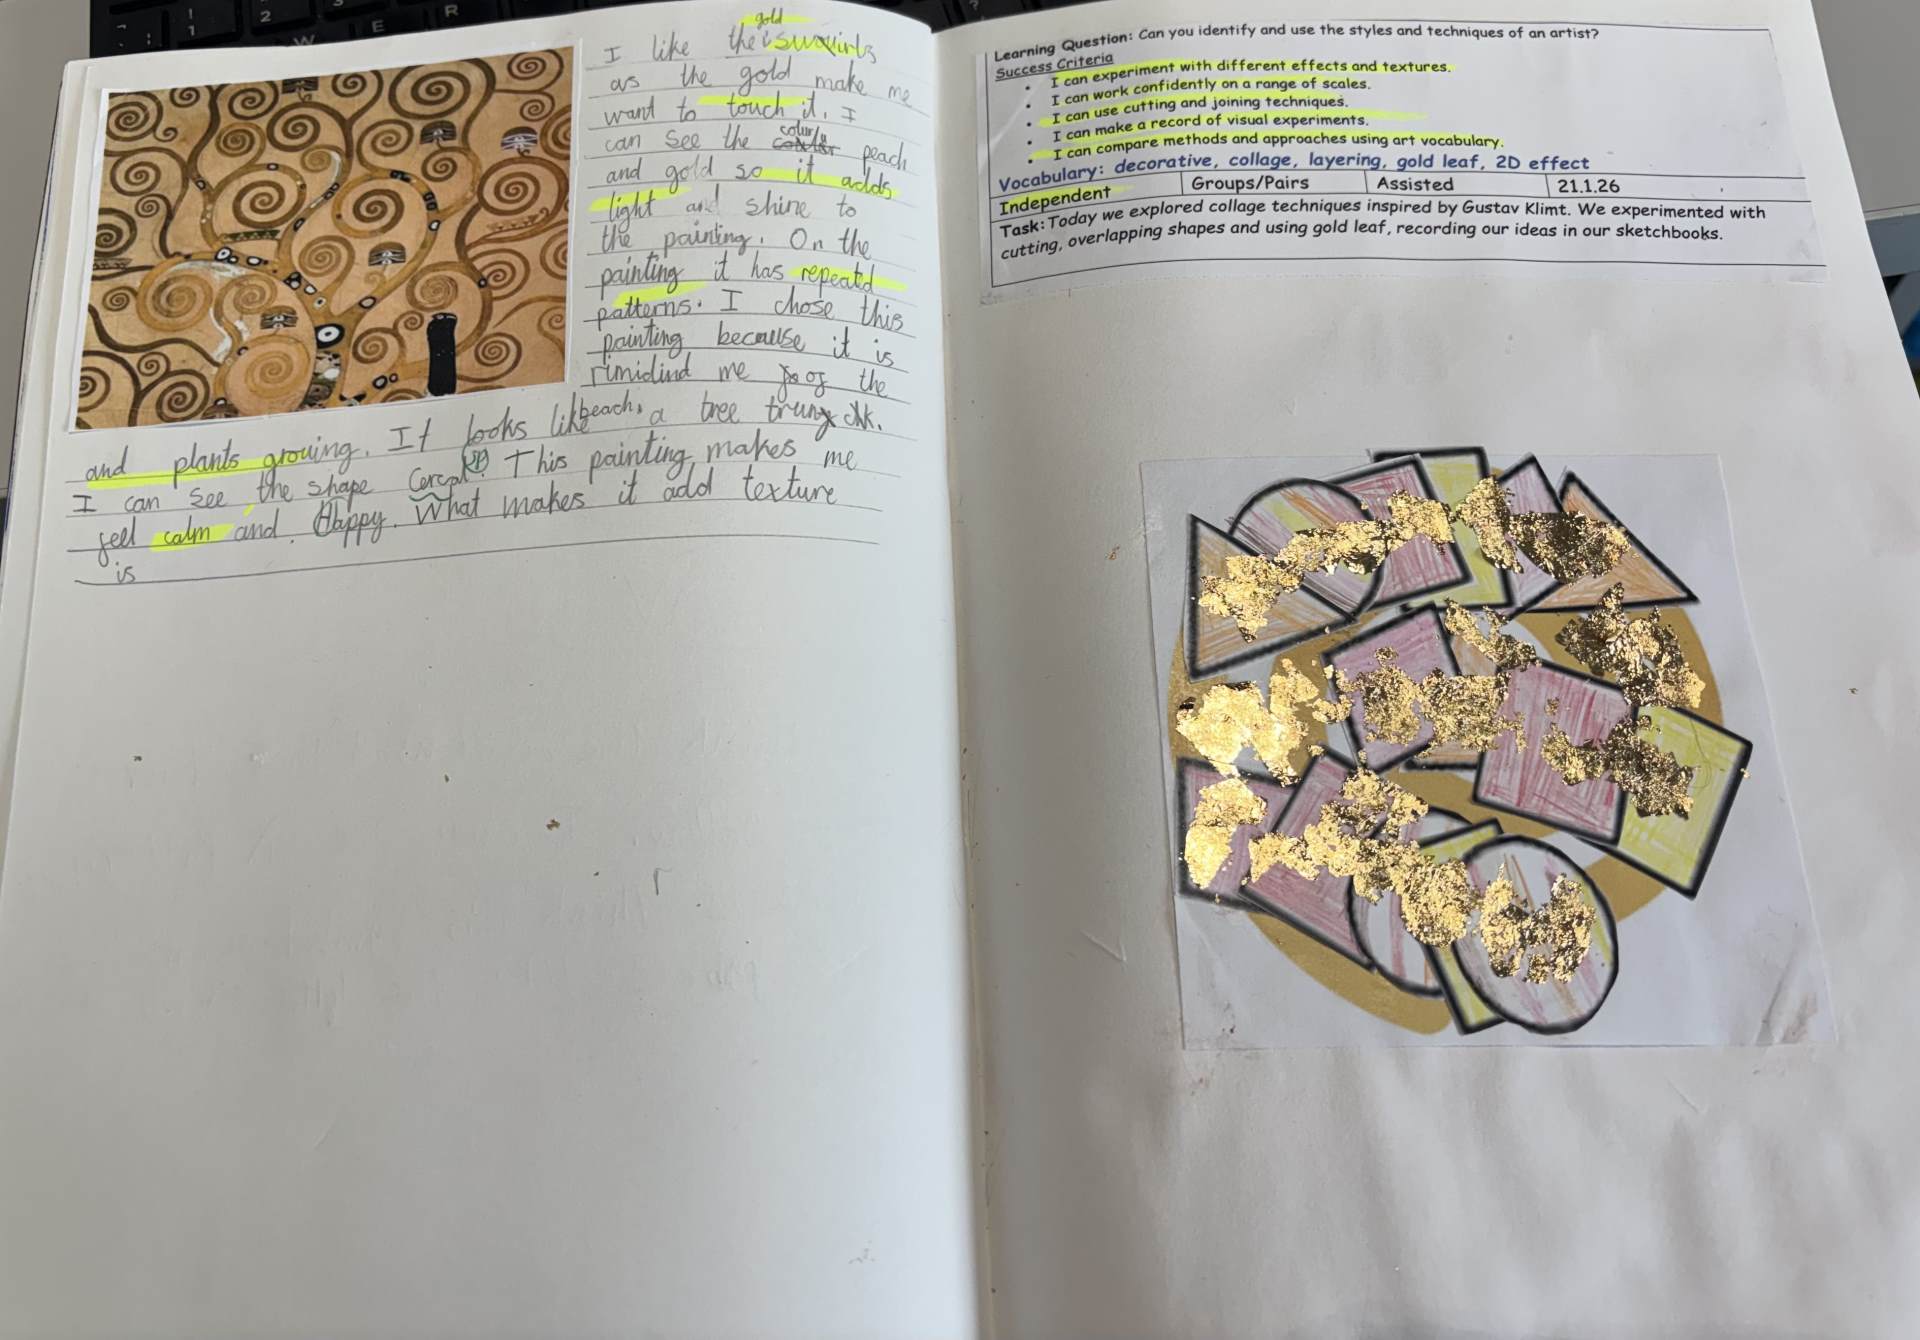 gold
I like the swirls
as the gold make me
want to touch it. I
can see the colurfu peach
and gold so it adds
light and shine to
the painting. On the
painting it has repeated
patterns. I chose this
painting because it is
rimidind me of the
beach, a tree trunck.
and plants growing. It looks like
I can see the shape Cercal. This painting makes me
feel calm and Happy. What makes it add texture
is
Learning Question: Can you identify and use the styles and techniques of an artist?
Success Criteria
• I can experiment with different effects and textures.
• I can work confidently on a range of scales.
• I can use cutting and joining techniques.
• I can make a record of visual experiments.
• I can compare methods and approaches using art vocabulary.
Vocabulary: decorative, collage, layering, gold leaf, 2D effect
Independent Groups/Pairs Assisted 21.1.26
Task: Today we explored collage techniques inspired by Gustav Klimt. We experimented with
cutting, overlapping shapes and using gold leaf, recording our ideas in our sketchbooks.